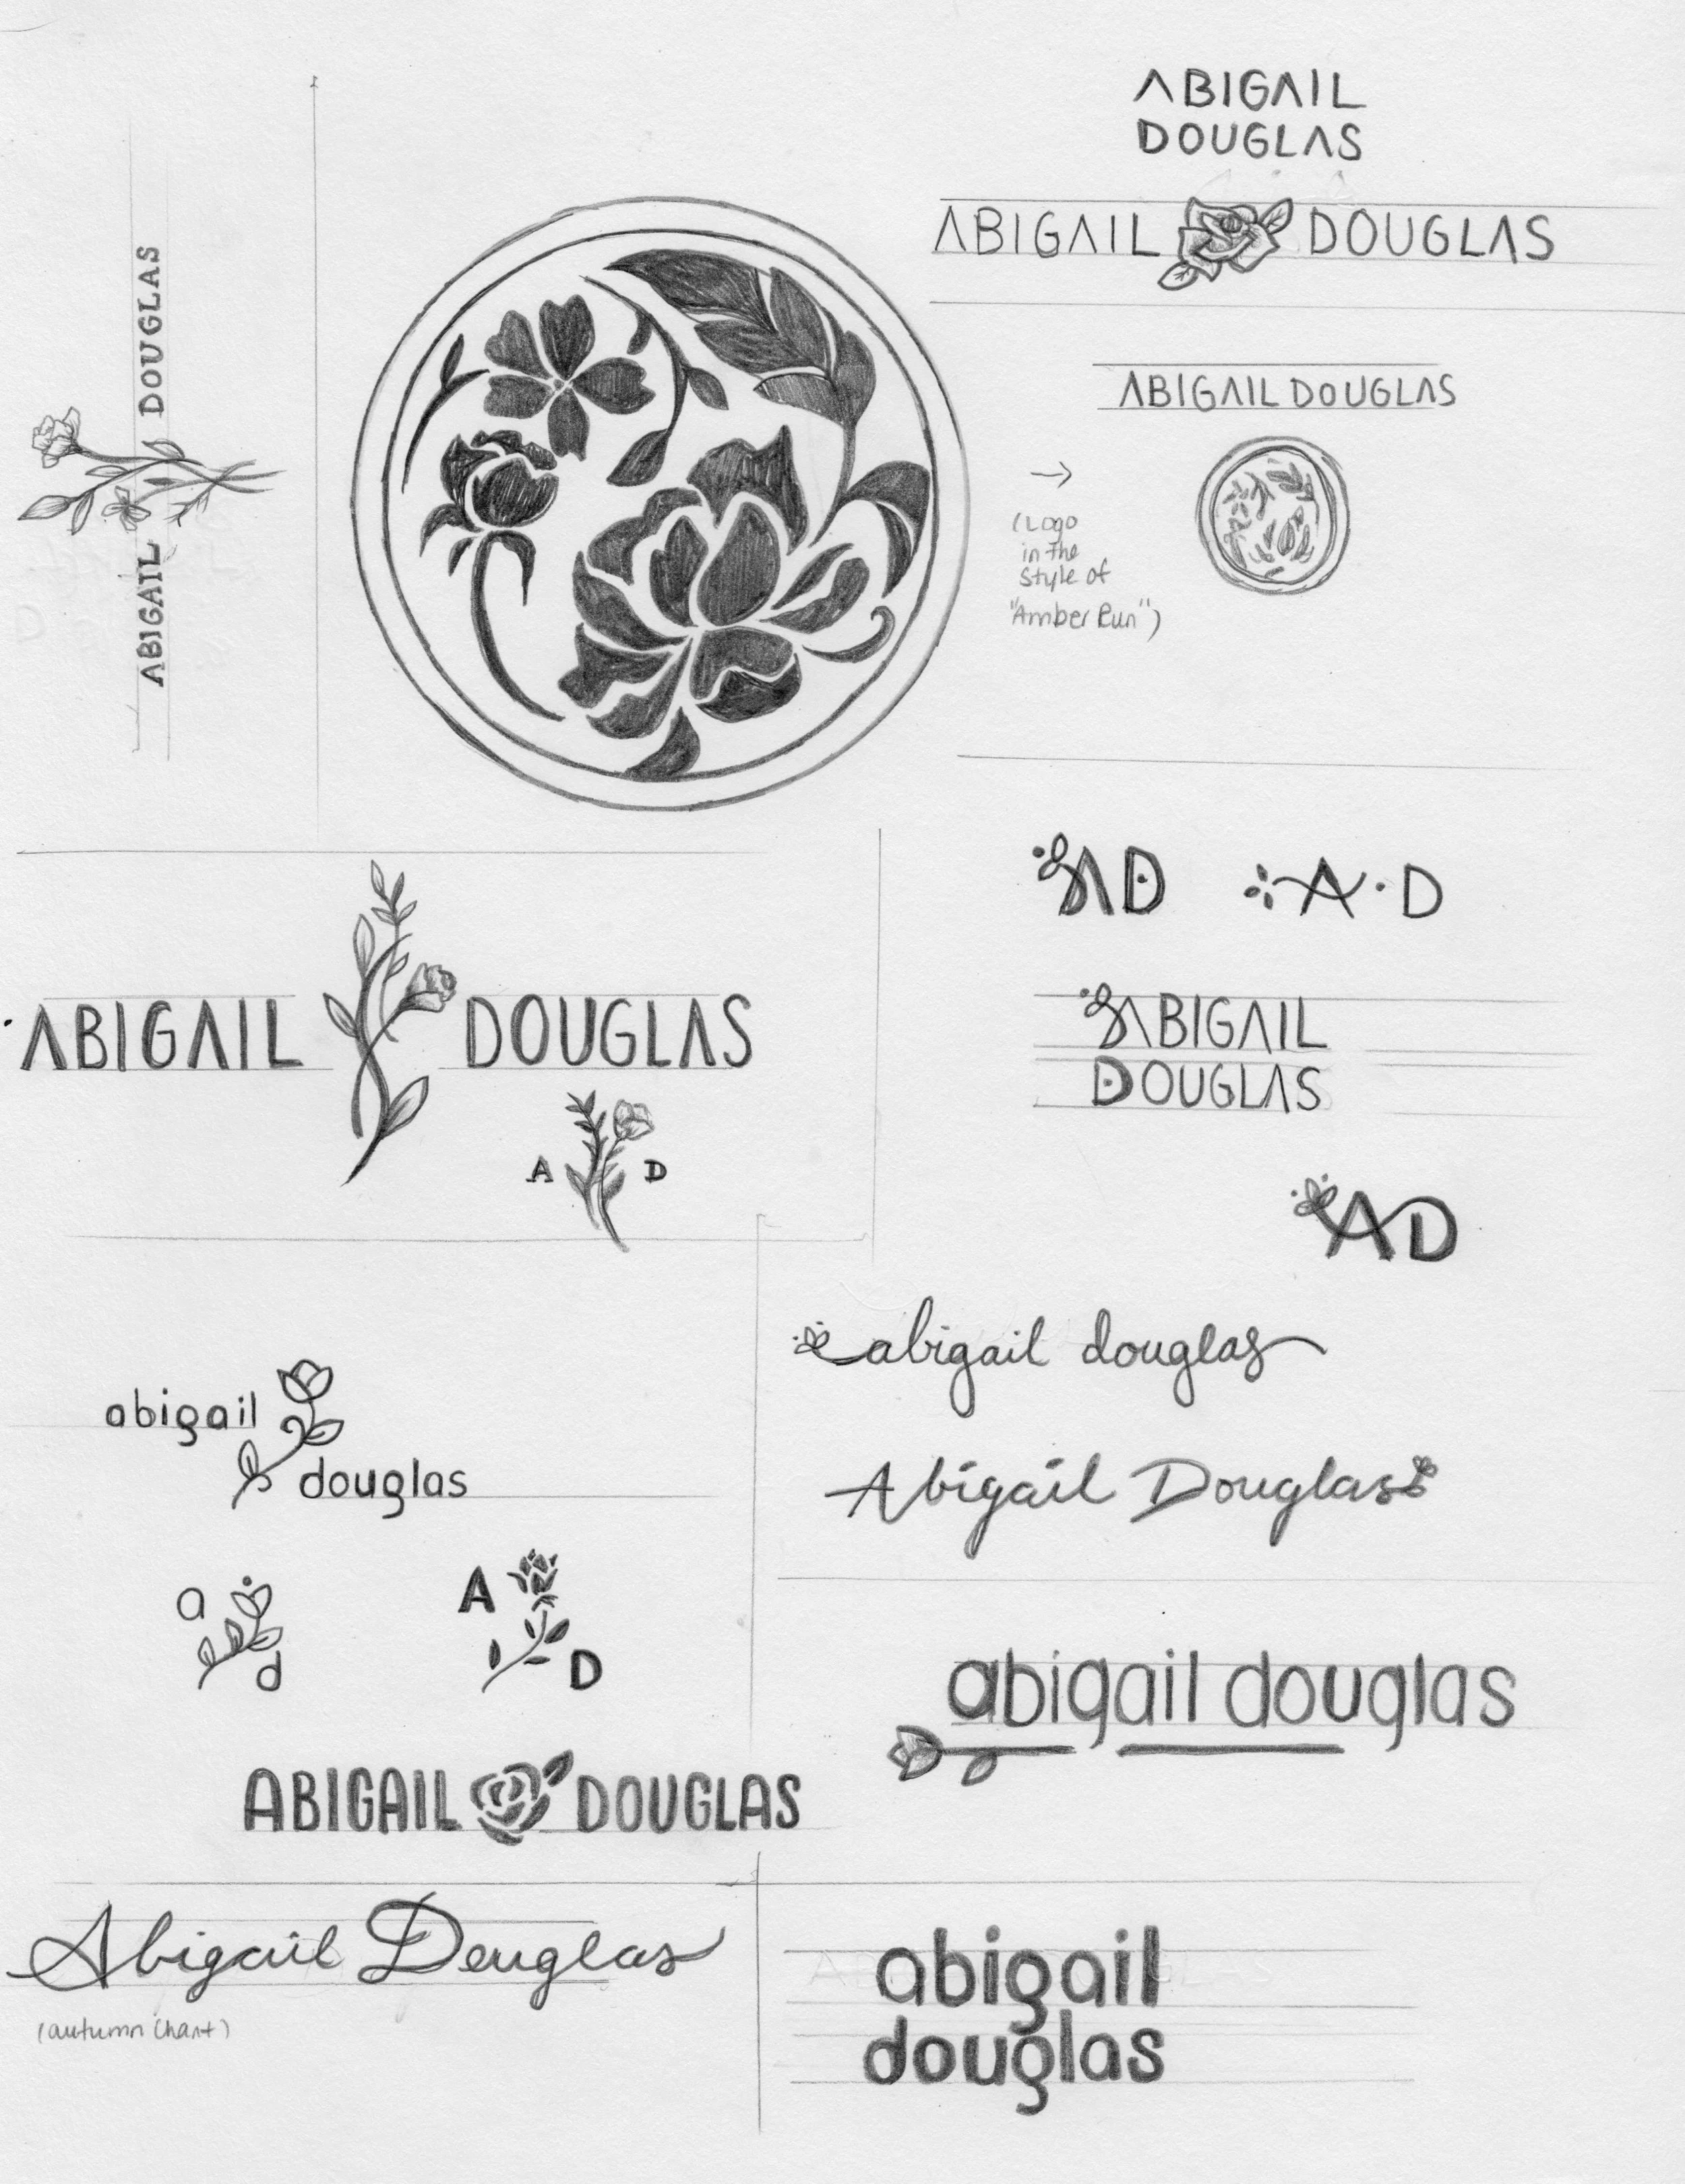 ABIGAIL
DOUGLAS
ABIGAIL DOUGLAS
ABIGAIL DOUGLAS
ABIGAIL DOUGLAS
(Logo
in the
style of
"Amber Run")
ABIGAIL DOUGLAS
A D
AD
A·D
ABIGAIL
DOUGLAS
AD
abigail douglas
Abigail Douglas
abigail
douglas
a
d
A
D
abigail douglas
ABIGAIL DOUGLAS
Abigail Douglas
(autumn chant)
abigail
douglas